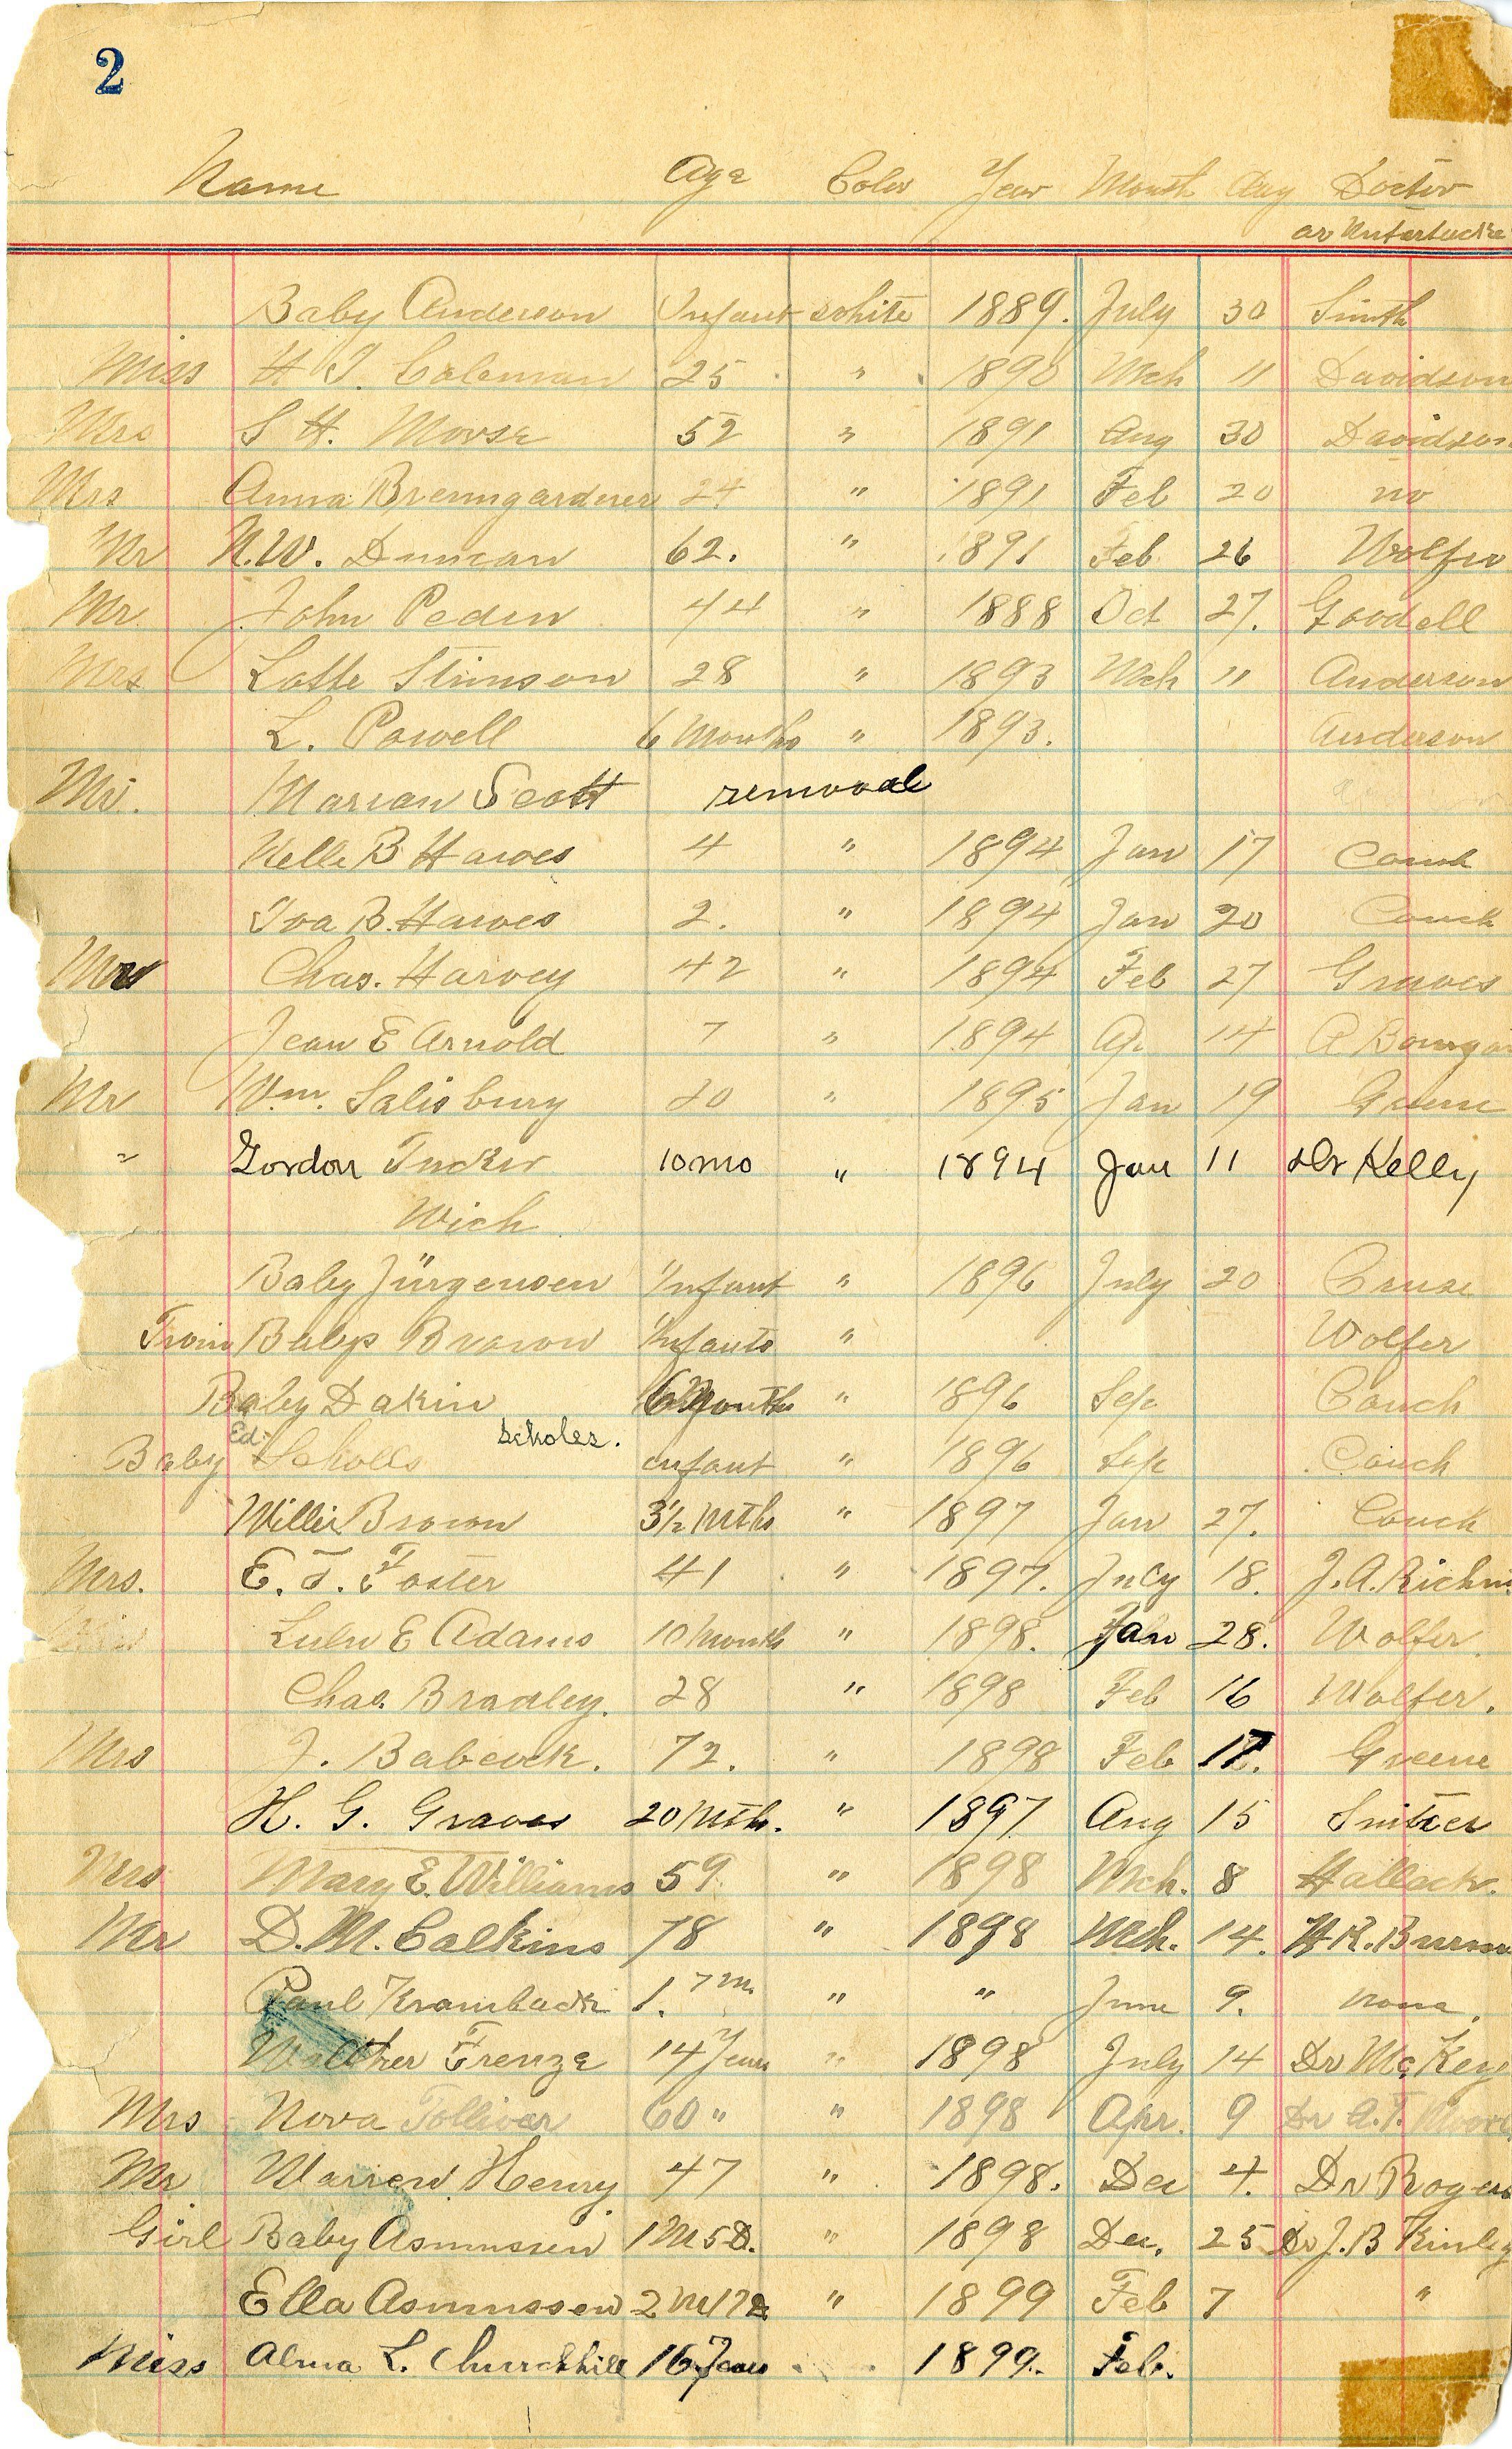 2
Name Age Color Year Month Day Doctor
or Untertucke
Baby Anderson Infant white 1889. July 30 Smith
Miss H J. Coleman 25 " 1890 Mch 11 Davidson
Mrs S H. Morse 52 " 1891 Aug 30 Davidson
Mrs Anna Bremgarderer 24 " 1891 Feb 20 no
Mr N.W. Duncan 62. " 1891 Feb 26 Wolfer
Mr John Peden 44 " 1888 Oct 27. Goodell
Mrs Lotte Stimson 28 " 1893 Mch 11 Anderson
L. Powell 6 Months " 1893. Anderson
Mr. Marian Scott removal
Nelle B Hawes 4 " 1894 Jan 17 Couch
Iva B. Hawes 2. " 1894 Jan 20 Couch
Mrs Chas. Harvey 42 " 1894 Feb 27 Graves
Jean E Arnold 7 " 1894 Ap. 14 A Bourgar
Mr Wm. Salisbury 20 " 1895 Jan 19 Greene
" Gordon Tucker 10 mo " 1894 Jan 11 Dr Kelly
Wich
Baby Jürgensen Infant " 1896 July 20 Cruse
Twin Babys Brown Infants " Wolfer
Baby Dakin 6 Months " 1896 Sep Couch
Ed. Scholes.
Baby Scholls infant " 1896 Sep Couch
Willie Brown 3 1/2 Mths " 1897 Jan 27. Couch
Mrs. E. T. Foster 41 " 1897. July 18. J. A. Richm
Lulu E Adams 10 Month " 1898. Jan 28. Wolfer.
Chas. Bradley. 28 " 1898 Feb 16 Wolfer.
Mrs J. Babcock. 72. " 1898 Feb Greene
H. G. Graves 20 Mth. " 1897 Aug 15 Snitzer
Mrs Mary E. Williams 59 " 1898 Mch. 8 Hallock.
Mr D. M. Calkins 78 " 1898 Mch. 14. W R. Burns
Paul Krambach 1. 7 m. " " June 9. none.
Walther Frenze 14 Years " 1898 July 14 Dr McKey
Mrs Nova Tolliver 60 " " 1898 Apr. 9 Dr A. T.
Mr Warren Henry 47 " 1898. Dec 4. Dr Rogers
Girl Baby Asmussen 1 M 5 D. " 1898 Dec. 25 Dr J. B Kinley
Ella Asmussen 2 M 17 D " 1899 Feb 7 "
Miss Alma L. Churchhill 16 Years 1899. Feb.